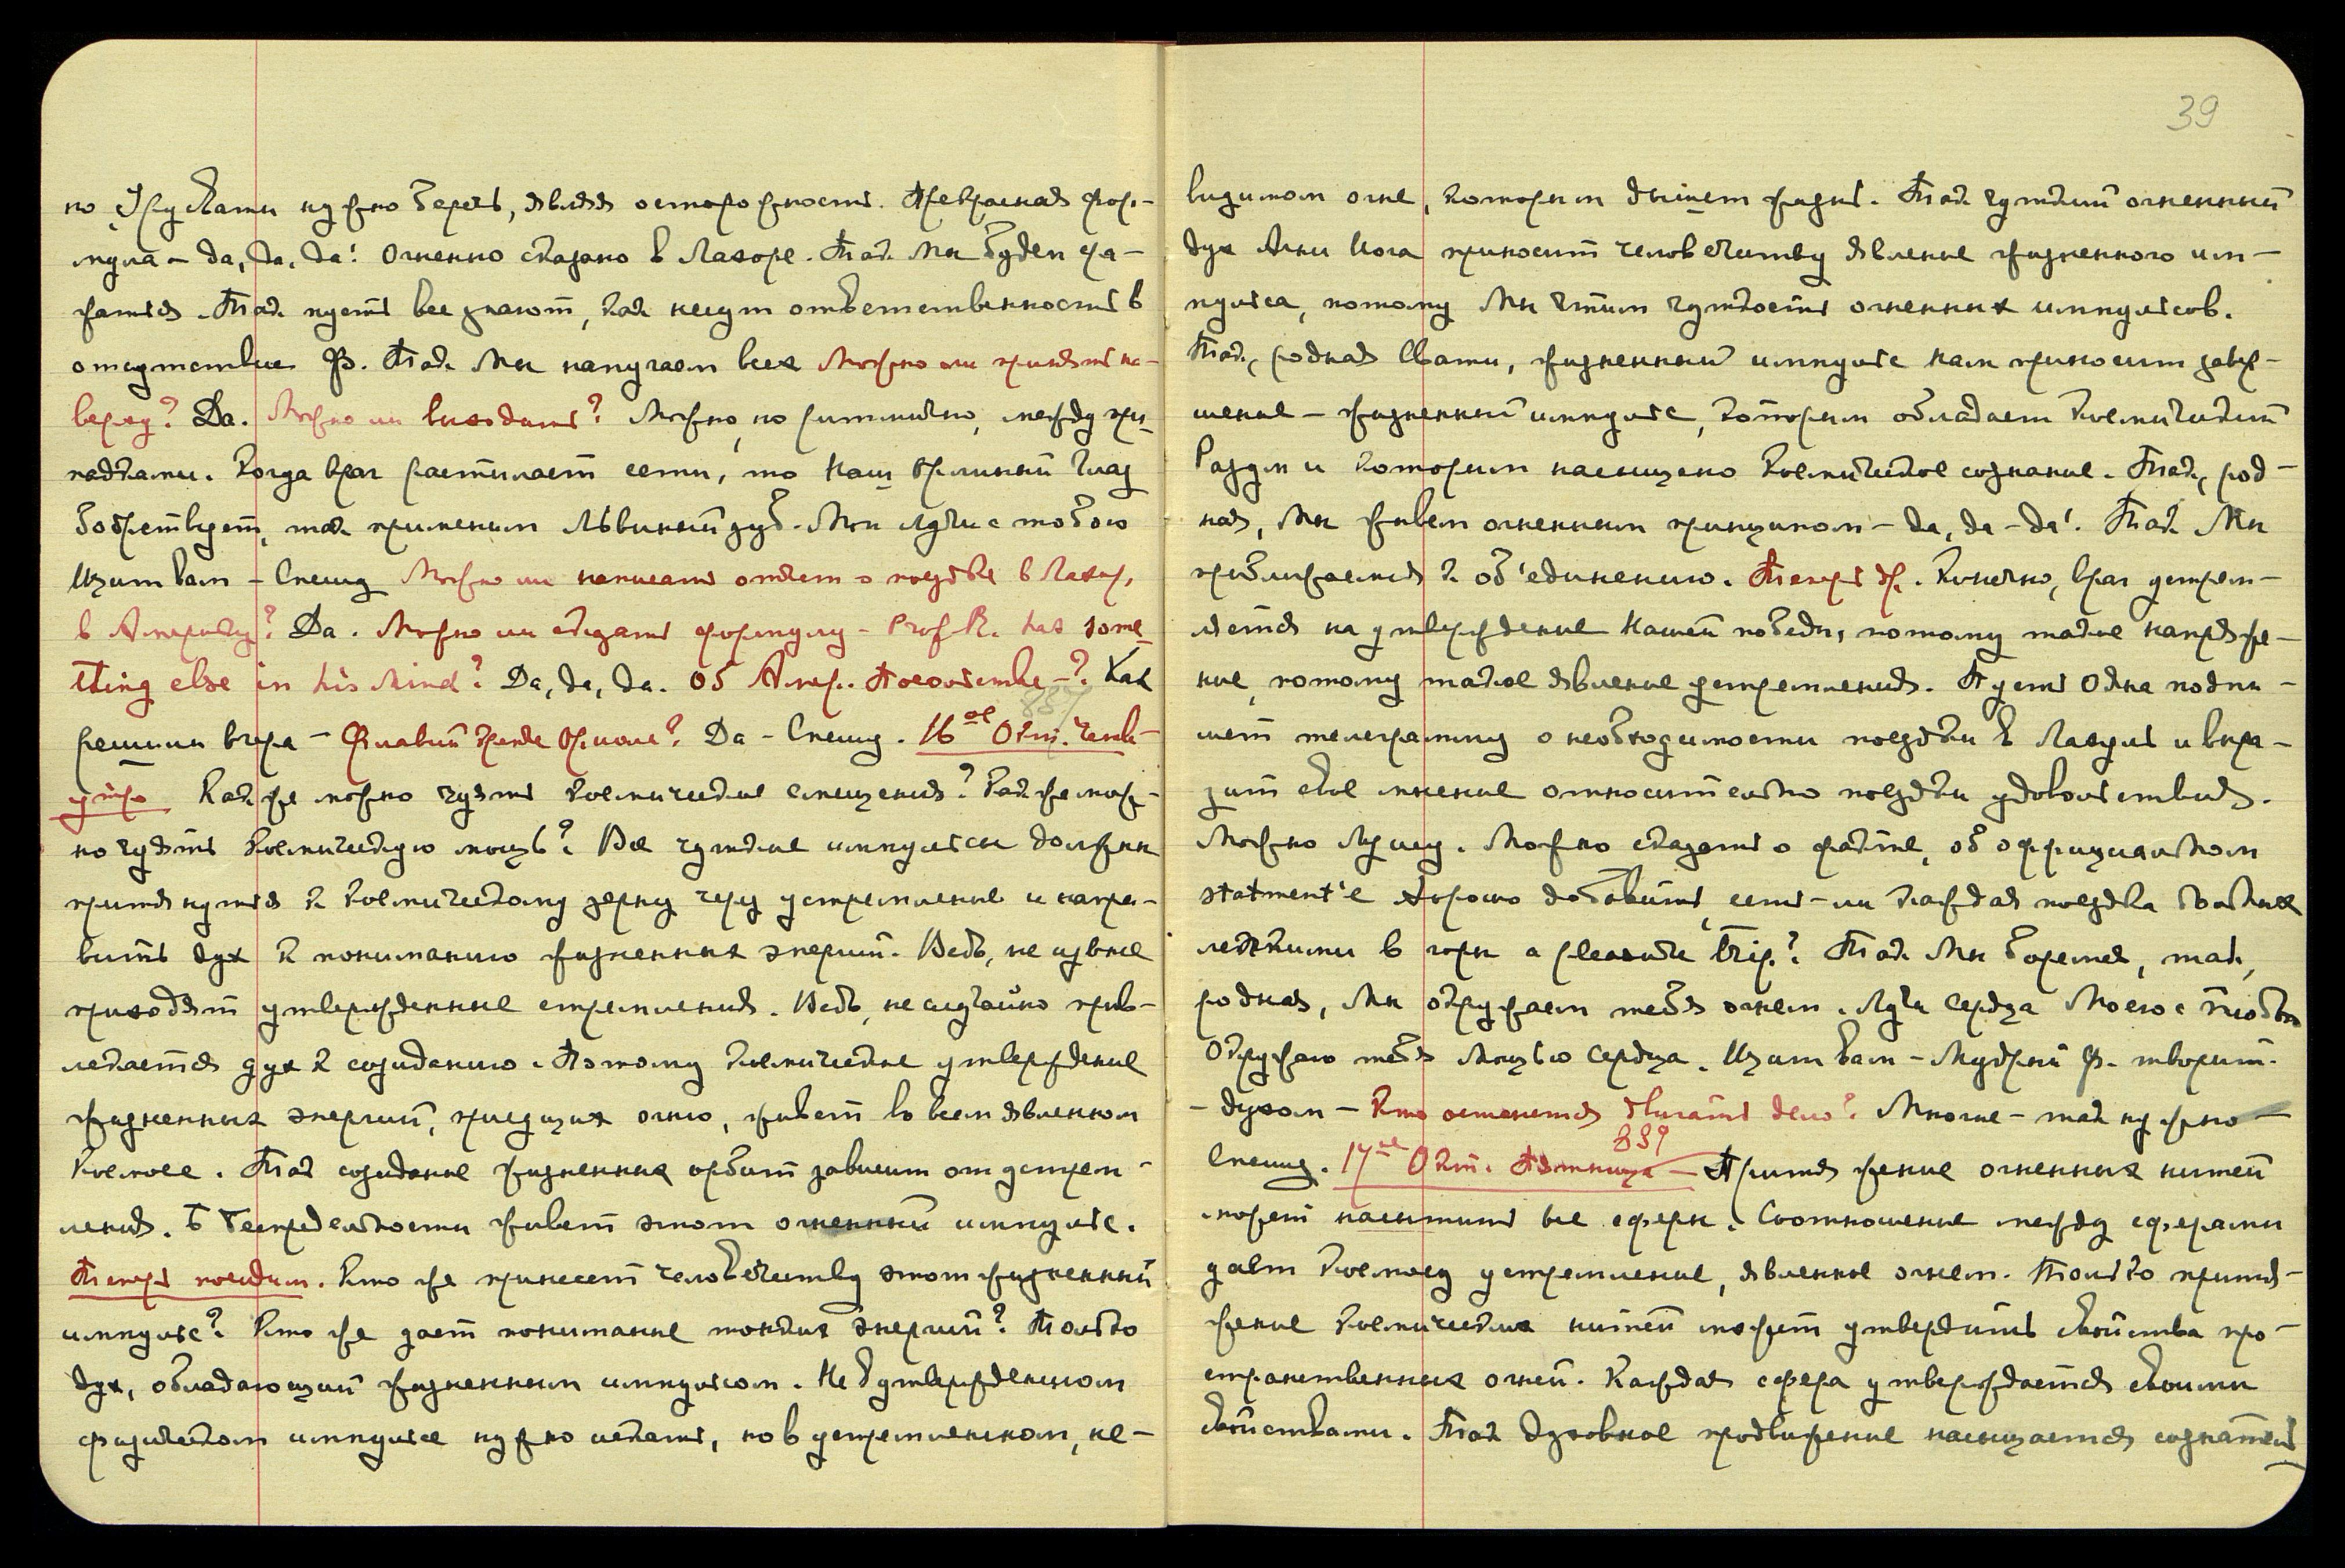 но Урусвати нужно беречь, являя осторожность. Прекрасная фор-
мула – да, да, да! Огненно сказано в Лагоре. Так Мы будем сра-
жаться. Так пусть все знают, как несут ответственность в
отсутствие Ф. Так Мы научаем всех Можно ли принять на-
веру? Да. Можно ли выходить? Можно, но ритмично, между при-
падками. Когда враг расстилает сети, то Наш орлиный глаз
бодрствует, так применим львиный зуб. Мои лучи с тобою
Щит вам – Спешу Можно ли написать отчет о поездке в Лагор,
в Америку? Да. Можно ли сказать формулу – Prof R. has some
thing else in his mind? Да, да, да. Об Амер. Посольстве –? Как
решили вчера – Флавий кредо? Да – Спешу. 16ое Окт. четв-
887
утро Как же можно чуять космические смещения? Как же мож-
но чуять космическую мощь? Все чуткие импульсы должны
притянуться к космическому зерну через устремление и напра-
вить дух к пониманию жизненных энергий. Ведь, не извне
приходят утвержденные стремления. Ведь, не случайно прив-
лекается дух к созиданию. Потому космические утверждение
жизненных энергий, присущих огню, живет во всем явленном
Космосе. Так созидание жизненных орбит зависит от устрем-
ления. В Беспредельности живет этот огненный импульс.
Теперь посидим. Кто же принесет человечеству этот жизненный
импульс? Кто же дает понимание тонких энергий? Только
дух, обладающий жизненным импульсом. Не в утвержденном
физическом импульсе нужно искать, но в устремленном, не-
39
видимом огне, которым дышет жизнь. Так чуткий огненный
дух Агни Йога приносит человечеству явление жизненного им-
пульса, потому Мы чтим чуткость огненных импульсов.
Так, родная Свати, жизненный импульс нам приносит завер-
шение – жизненный импульс, которым обладает Космический
Разум и которым насыщено космическое сознание. Так, род-
ная, Мы живем огненным принципом – да, да – да! Так Мы
приближаемся к об'единению. Теперь др. Конечно, враг устрем-
ляется на утверждение Нашей победы, потому такое напряже-
ние, потому такое явление устремления. Пусть Одна подпи-
шет телеграмму о необходимости поездки в Лагуль и выра-
зит свое мнение относительно поездки удовольствия.
Можно Лузису. Можно сказать о факте, об оффициальном
statment'е Хорошо добавить, есть-ли каждая поездка больных
легкими в горы a pleasure trip? Так Мы боремся, так,
родная, Мы окружаем тебя огнем. Лучи Сердца Моего с тобою
Окружаю тебя Мощью Сердца. Щит вам – Мудрый Ф. творит
– духом – Кто останется двигать дело? Многие – так нужно –
889
Спешу. 17ое Окт. Пятница – Притяжение огненных нитей
может насытить все сферы. Соотношение между сферами
дает Космосу устремление, явленное огнем. Только притя-
жение космических нитей может утвердить свойства про-
странственных огней. Каждая сфера утверждается своими
свойствами. Так духовное продвижение насыщается сознатель